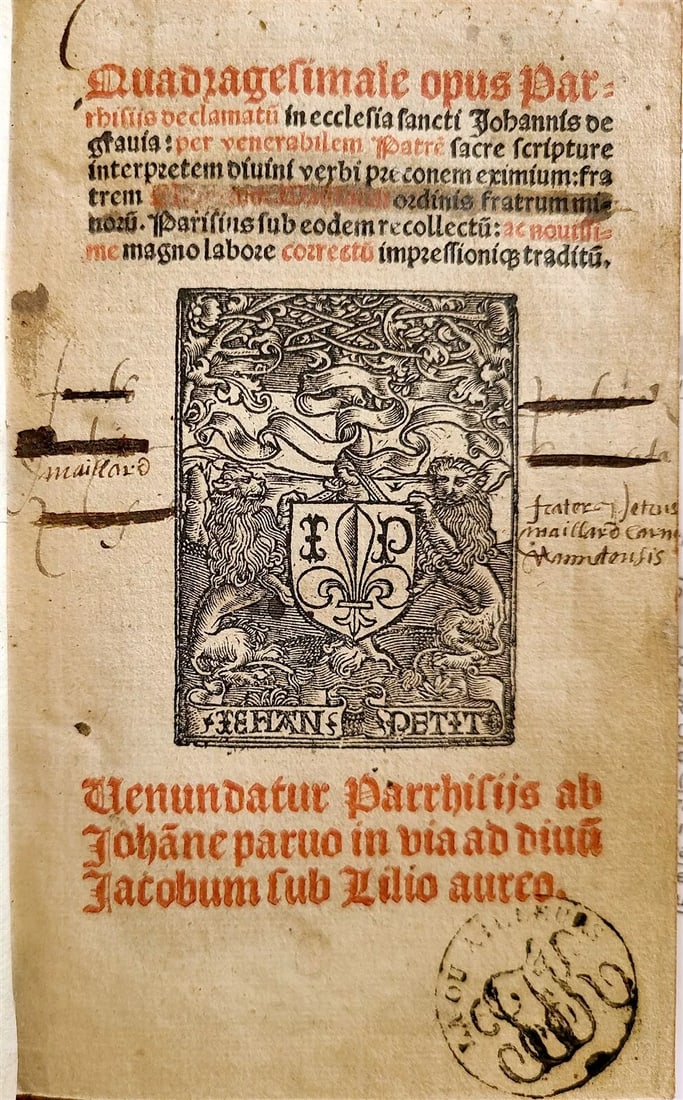 Quadragesimale opus Par⸗
rhisijs declamatū in ecclesia sancti Johannis de
grauia: per venerabilem Patrē sacre scripture
interpretem diuini verbi preconem eximium: fra
trem ordinis fratrum mi⸗
norū. Parisius sub eodem recollectū: ac nouissi⸗
me magno labore correctū impressioniqꝫ traditū.
maillard
frater petrus
maillard carm
Nannetensis
I P
IEHAN PETIT
Uenundatur Parrhisijs ab
Johāne paruo in via ad diuū
Jacobum sub Lilio aureo.
LA OU AILLEURS